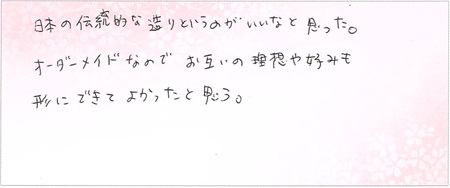 日本の伝統的な造りというのがいいなと思った。
オーダーメイドなので お互いの理想や好みも
形にできて よかったと思う。